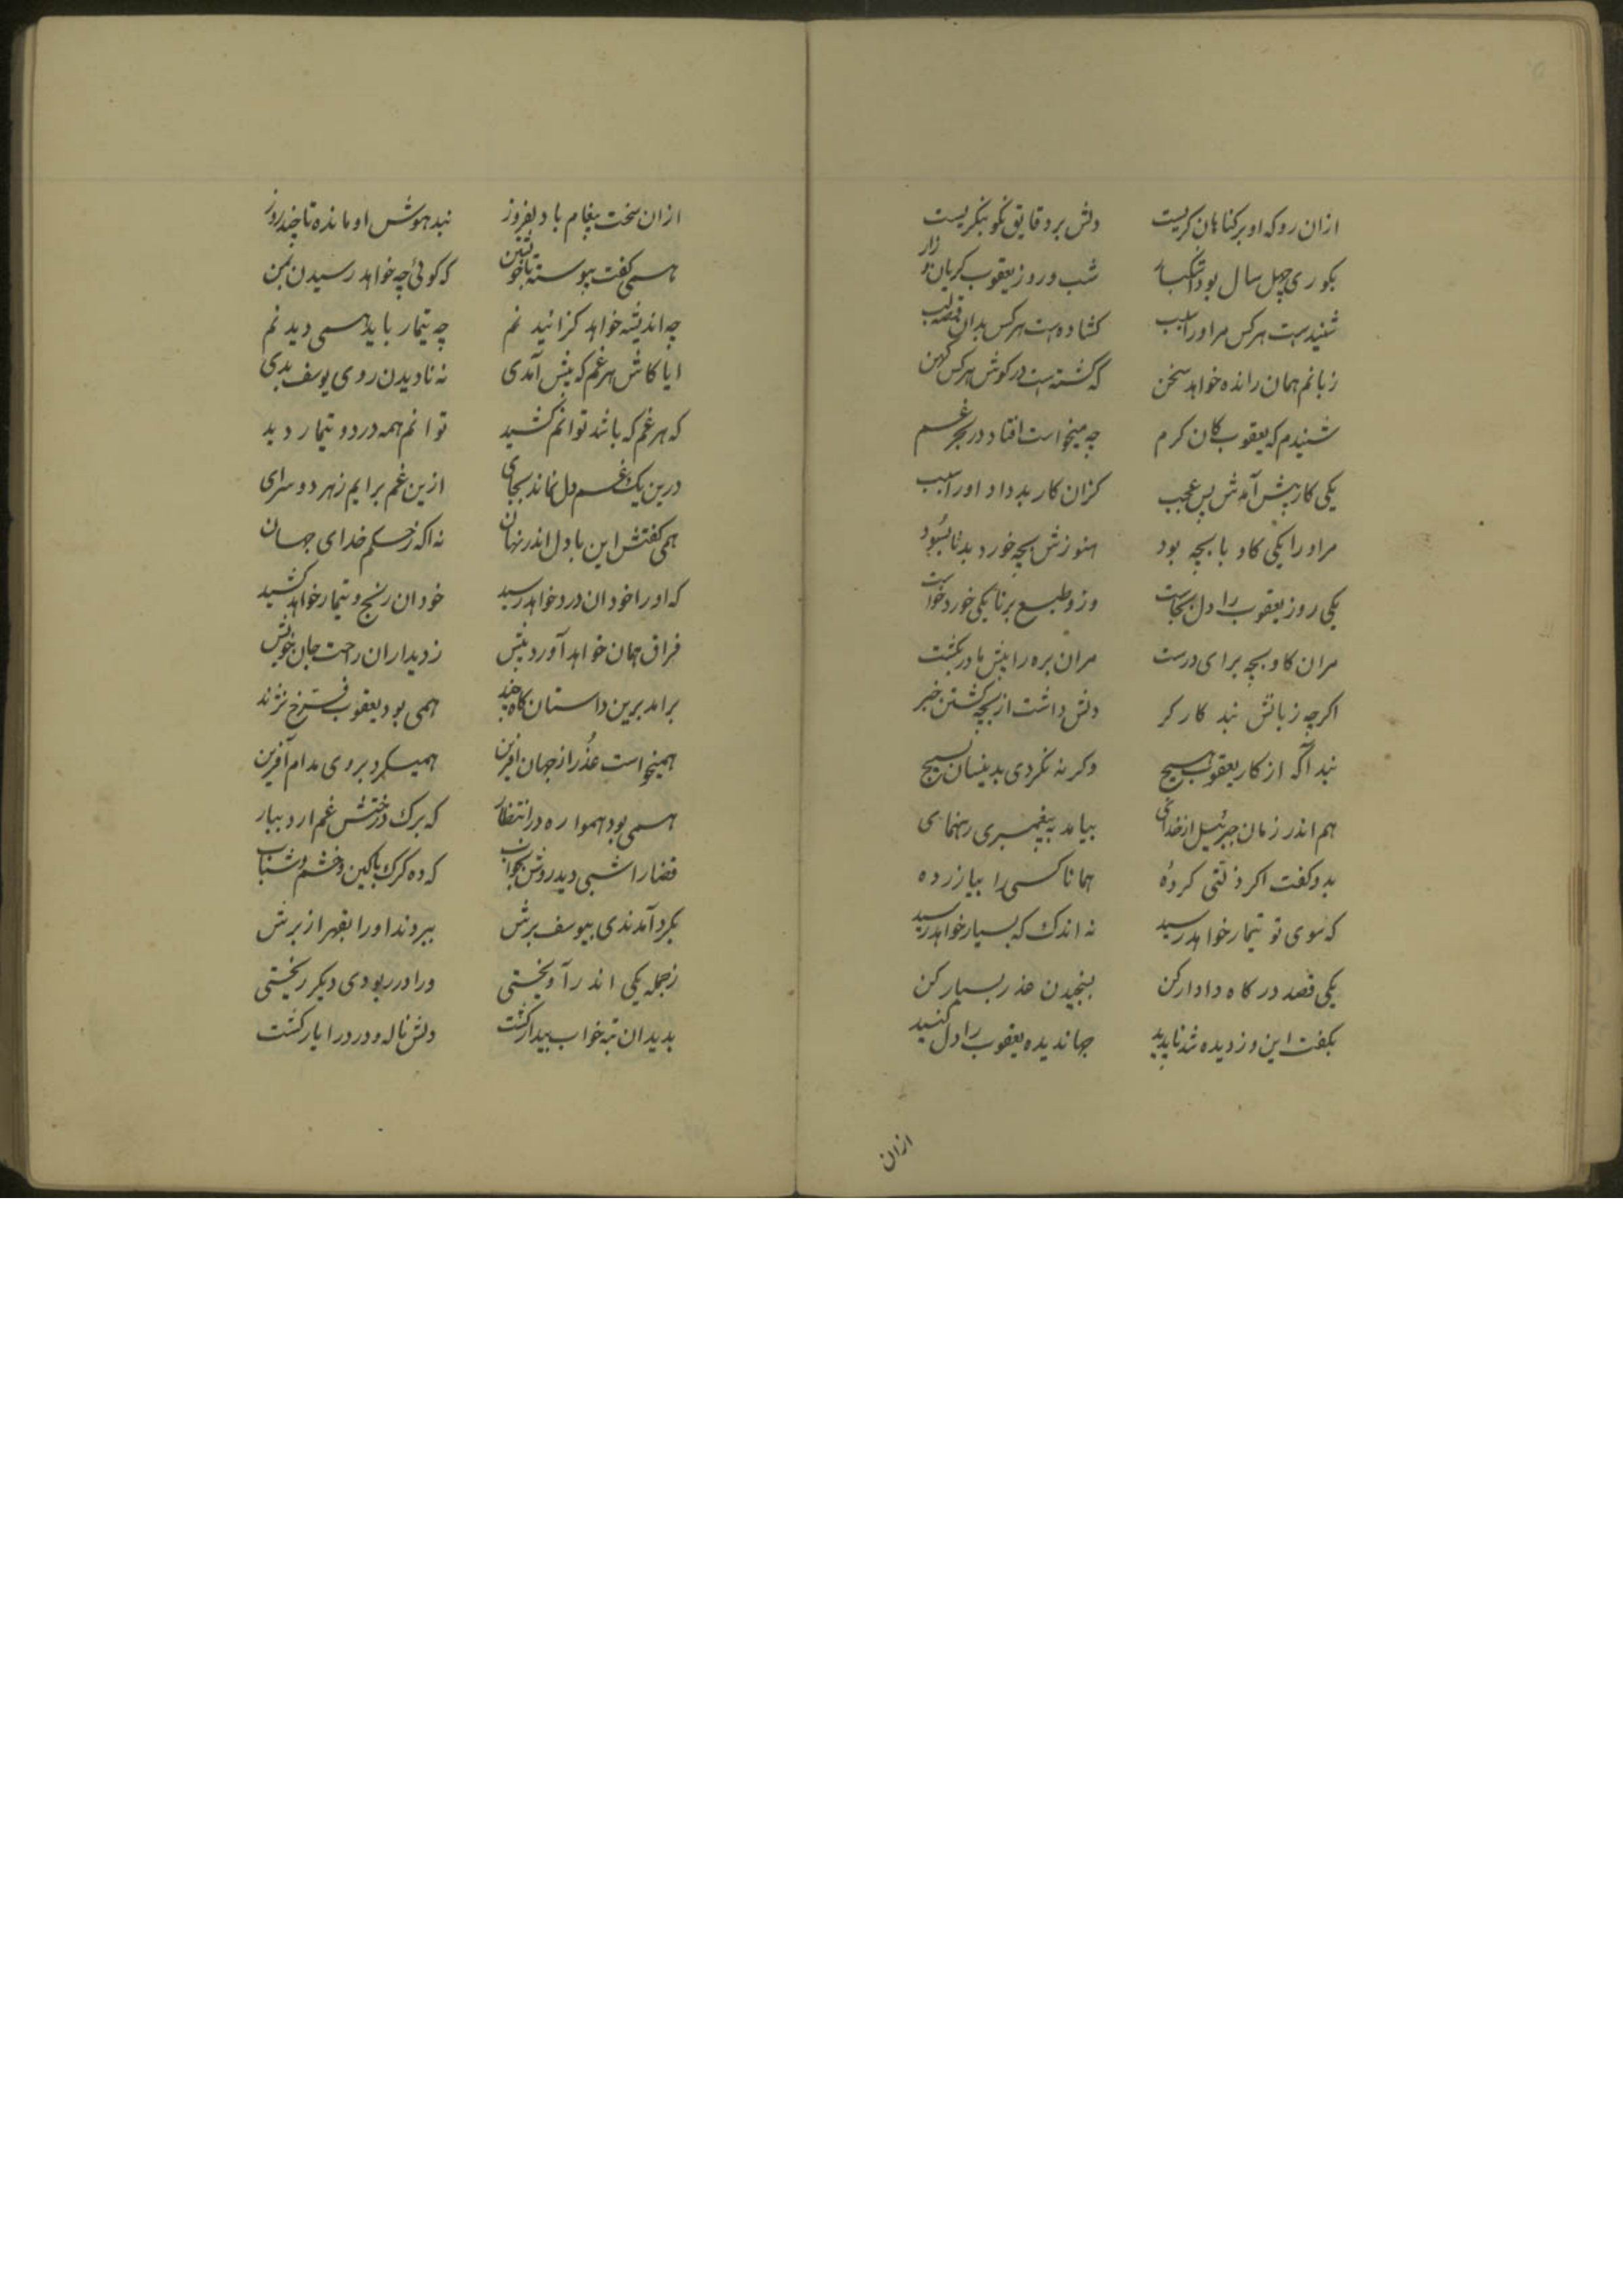 ازان رو که او بر کناهان کریست دلش بر دقایق نکو بنکریست
بکوری چهل سال بود اشکبار شب و روز یعقوب کریان بود زار
شنیدست هر کس مر او را سبب کشادست هر کس بدان قصه لب
زبانم همان رانده خواهد سخن که کشته است در کوش هر کس کهن
شنیدم که یعقوب کان کرم چه میخواست افتاد در بحر غم
یکی کار پیش آمدش بس عجب کزان کار بد داد او را سبب
مر او را یکی کاو با بچه بود هنوزش بچه خورد بد نابسود
یکی روز یعقوب را دل بخاست وزو طبع برنا یکی خورد خواست
مران کاو بچه برای درست مران بره را پیش مادر بکشت
اکرچه زبانش نبد کارکر دلش داشت از بچه کشتن خبر
نبد آکه از کار یعقوب هیچ وکرنه نکردی بدینسان بسیج
هم اندر زمان جبرئیل از خدای بیامد به پیغمبری رهنمای
بدو کفت اکر ذلتی کردهٔ همانا کسی را بیازرده
که سوی تو تیمار خواهد رسید نه اندک که بسیار خواهد رسید
یکی قصد درکاه دادار کن بنجیدن عذر بسیار کن
بکفت این و زدیده شد ناپدید جهاندیده یعقوب را دل
ازان
ازان سخت پیغام با دلفروز نبد هوش او مانده تا چند روز
همی کفت پیوسته با خویشتن که کوئی چه خواهد رسیدن بمن
چه اندیشه خواهد کزانید نم چه تیمار باید همی دیدنم
ایا کاش هر غم که پیش آمدی نه نادیدن روی یوسف بدی
که هر غم که باشد توانم کشید توانم همه درد و تیمار دید
درین یک غم دل نماند بجای ازین غم برایم زهر دو سرای
همی کفتش این با دل اندر نهان نه اکه ز حکم خدای جهان
که او را خود آن درد خواهد رسید خود آن رنج و تیمار خواهد کشید
فراق همان خواهد آورد پیش ز دیداران راحت جان خویش
برامد برین داستان کاه چند همی بود یعقوب فرخ نژند
همیخواست عذر از جهان افرین همیکرد بر وی مدام آفرین
همی بود همواره در انتظار که برک درختش غم ارد ببار
قضا را شبی دید روشن بخواب که ده کرک با کین و خشم و شتاب
بکرد آمدندی بیوسف برش ببردند او را بقهر از برش
ز جمله یکی اندر آویختی ورا در ربودی دیکر ریختی
بدید ان نبه خواب بیدار کشت دلش ناله و درد را یار کشت